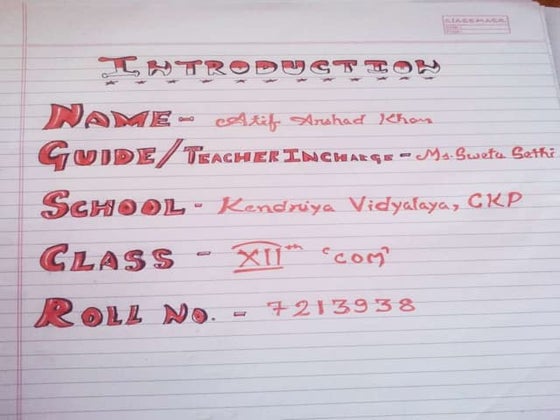 CLASSMATE
INTRODUCTION
NAME - Atif Arshad Khan
GUIDE/TEACHER INCHARGE - Ms. Sweta Sethi
SCHOOL - Kendriya Vidyalaya, CKP
CLASS - XIIth 'COM'
ROLL NO. - 7213938